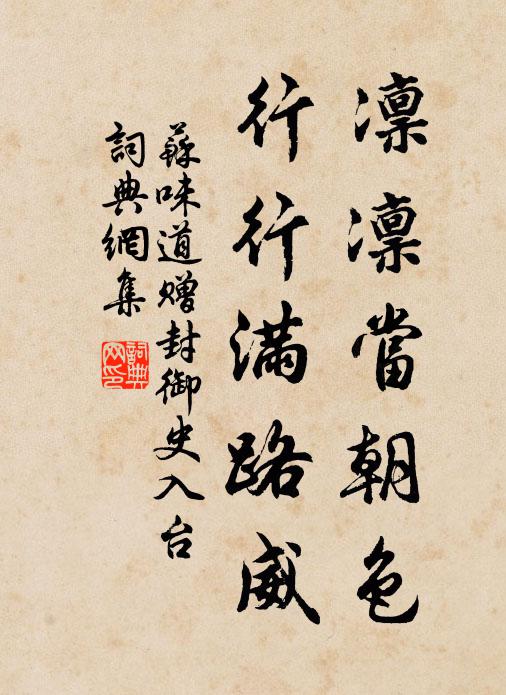 凛凛當朝色
行行满路威
蘇味道贈封御史入台
詞典網集
詞典网印